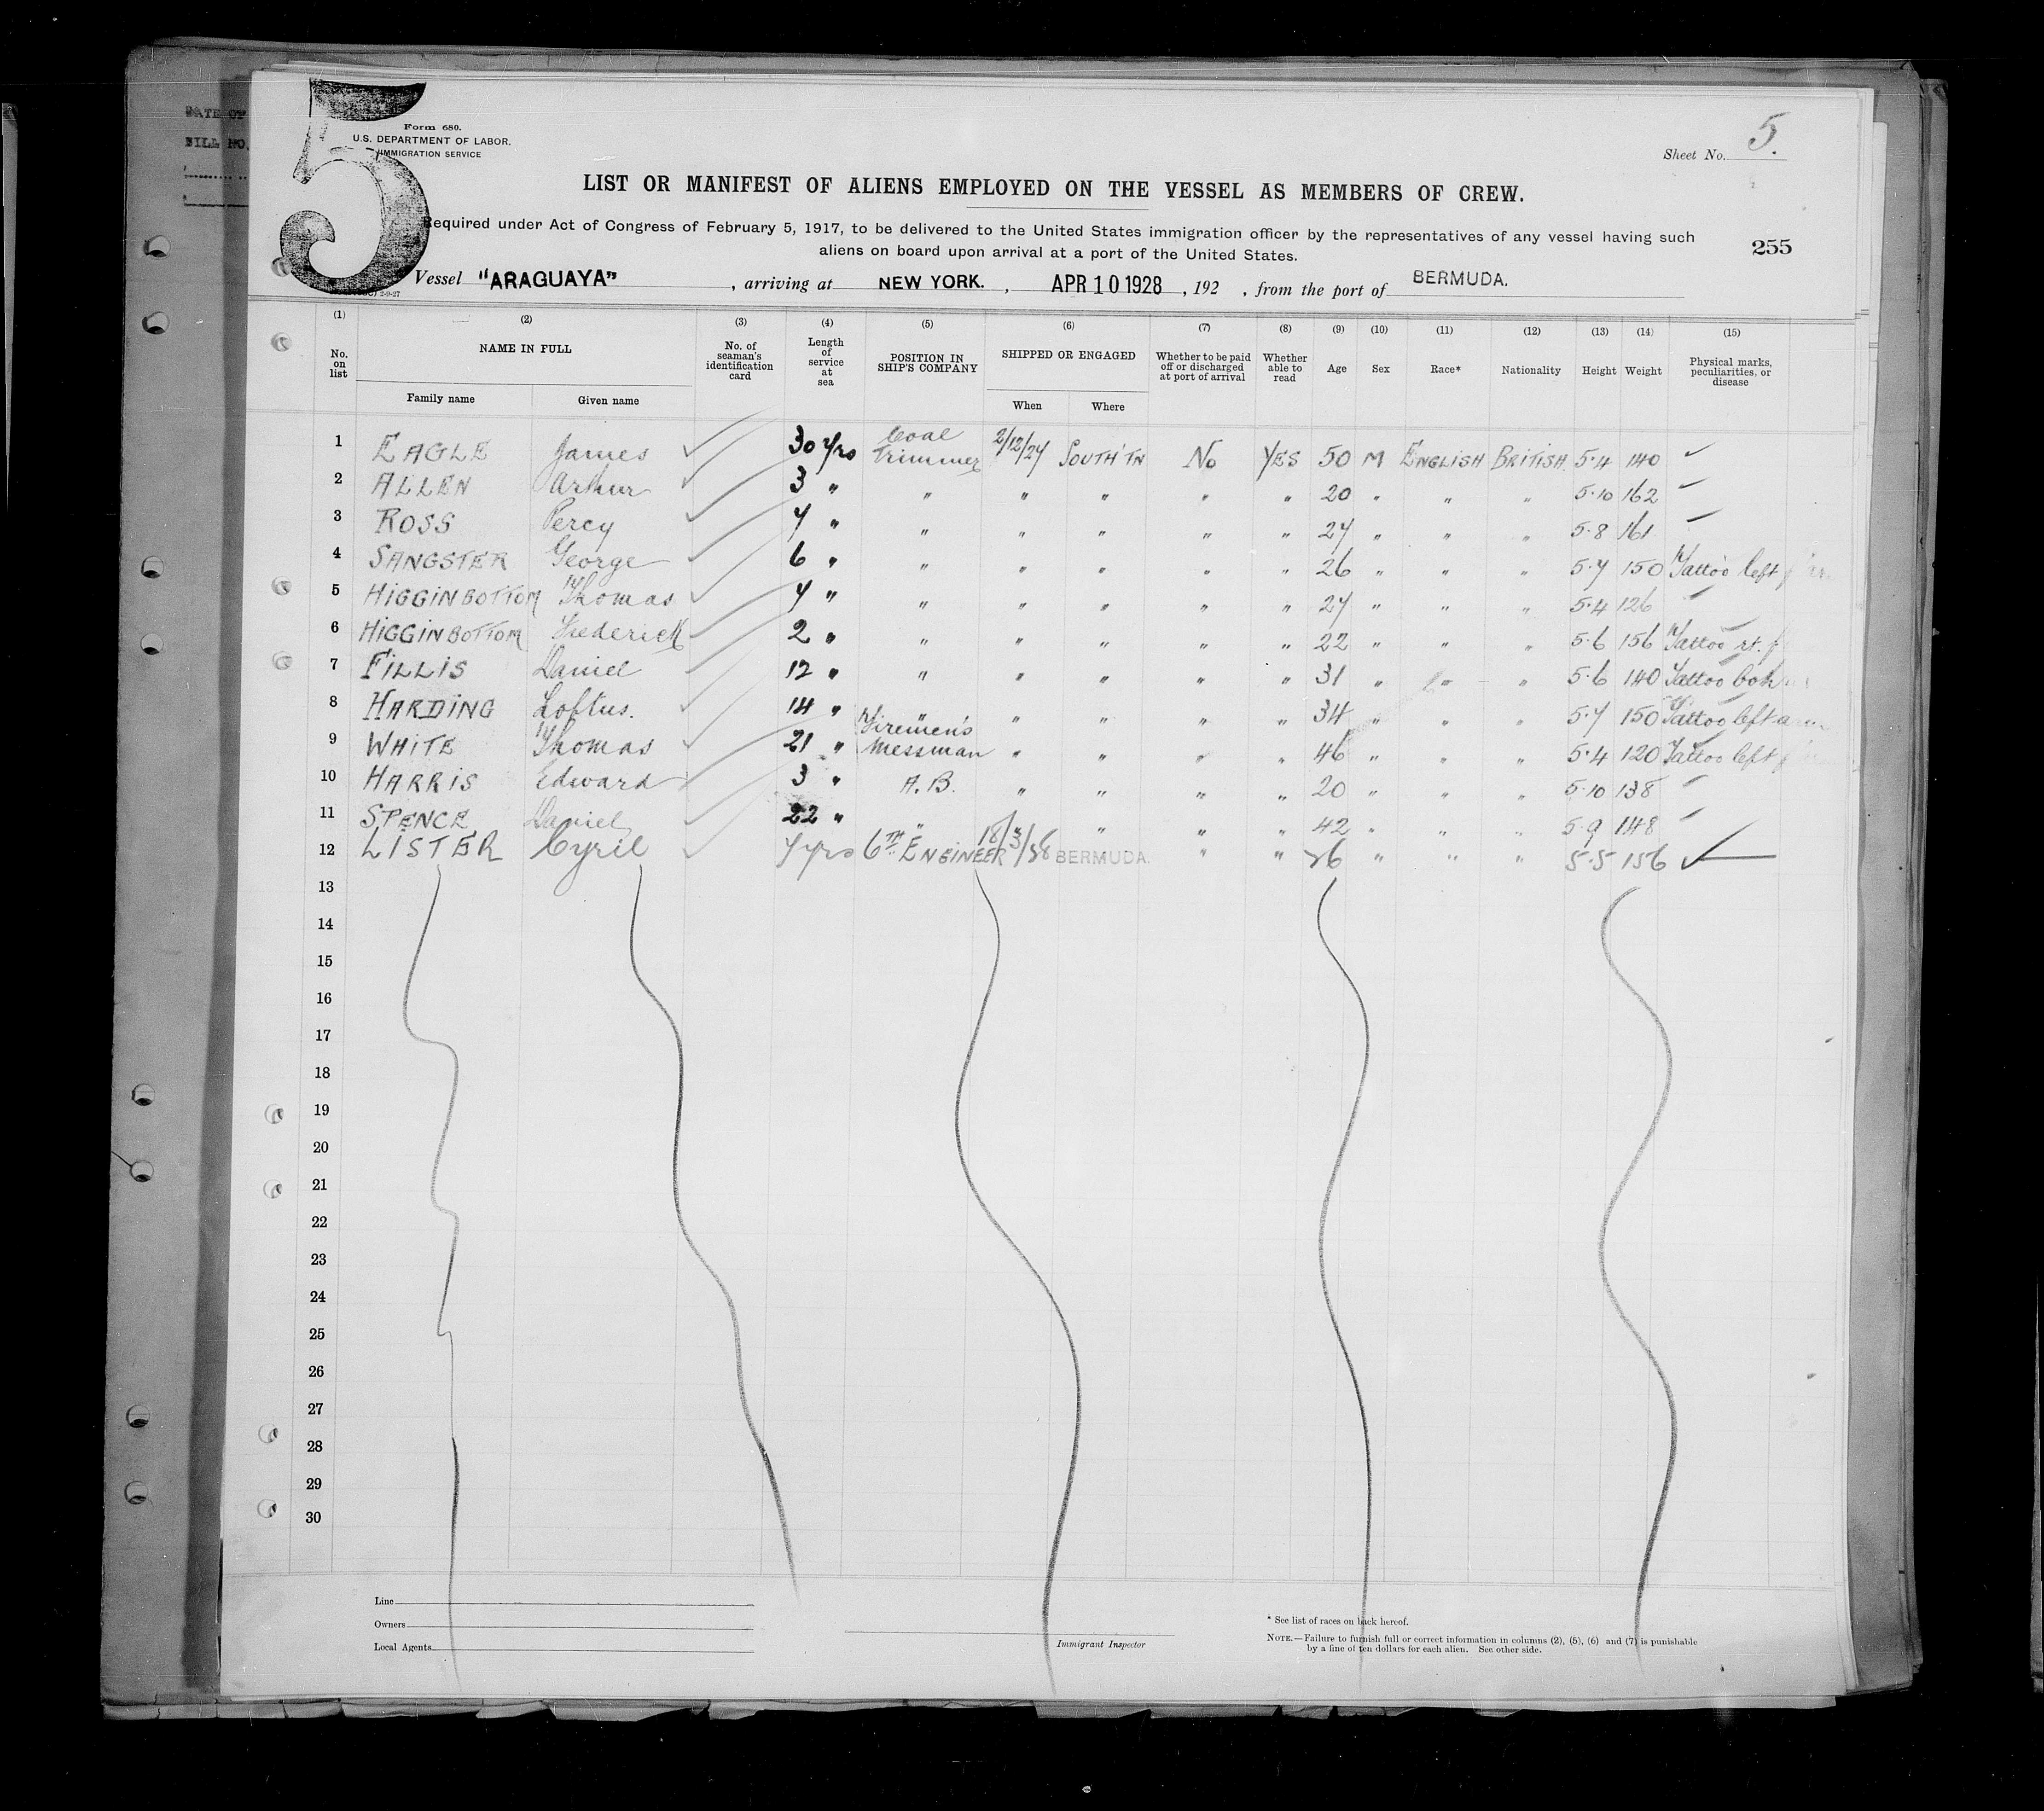 DATE OF
FILL NO.
5
Form 680.
U.S. DEPARTMENT OF LABOR.
IMMIGRATION SERVICE
Sheet No. 5.
LIST OR MANIFEST OF ALIENS EMPLOYED ON THE VESSEL AS MEMBERS OF CREW.
Required under Act of Congress of February 5, 1917, to be delivered to the United States immigration officer by the representatives of any vessel having such
aliens on board upon arrival at a port of the United States.
255
Vessel "ARAGUAYA" , arriving at NEW YORK. , APR 10 1928 , 192 , from the port of BERMUDA.
(1) (2) (3) (4) (5) (6) (7) (8) (9) (10) (11) (12) (13) (14) (15)
No. on list NAME IN FULL No. of seaman's identification card Length of service at sea POSITION IN SHIP'S COMPANY SHIPPED OR ENGAGED Whether to be paid off or discharged at port of arrival Whether able to read Age Sex Race* Nationality Height Weight Physical marks, peculiarities, or disease
Family name Given name When Where
1 EAGLE James ✓ 30 yrs Coal Trimmer 2/12/27 SOUTH'TN No YES 50 M ENGLISH BRITISH 5.4 140 ✓
2 ALLEN Arthur ✓ 3 " " " " " " 20 " " " 5.10 162 ✓
3 ROSS Percy ✓ 7 " " " " " " 27 " " " 5.8 161
4 SANGSTER George ✓ 6 " " " " " " 26 " " " 5.7 150 Tattoo left
5 HIGGINBOTTOM Thomas ✓ 7 " " " " " " 27 " " " 5.4 126
6 HIGGINBOTTOM Frederick ✓ 2 " " " " " " 22 " " " 5.6 156 Tattoo rt. f
7 FILLIS Daniel ✓ 12 " " " " " " 31 " " " 5.6 140 Tattoo both
8 HARDING Loftus. ✓ 14 " " " " " " 34 " " " 5.7 150 Tattoo left arm
9 WHITE Thomas ✓ 21 " Firemen's Messman " " " " 46 " " " 5.4 120 Tattoo left
10 HARRIS Edward ✓ 3 " A.B. " " " " 20 " " " 5.10 138
11 SPENCE Daniel ✓ 22 " " " " " 42 " " " 5.9 148
12 LISTER Cyril ✓ 7 yrs 6TH ENGINEER 18/3/28 BERMUDA. " " 26 " " " 5.5 156 ✓
13
14
15
16
17
18
19
20
21
22
23
24
25
26
27
28
29
30
Line
Owners
Local Agents
Immigrant Inspector
* See list of races on back hereof.
NOTE.—Failure to furnish full or correct information in columns (2), (5), (6) and (7) is punishable
by a fine of ten dollars for each alien. See other side.